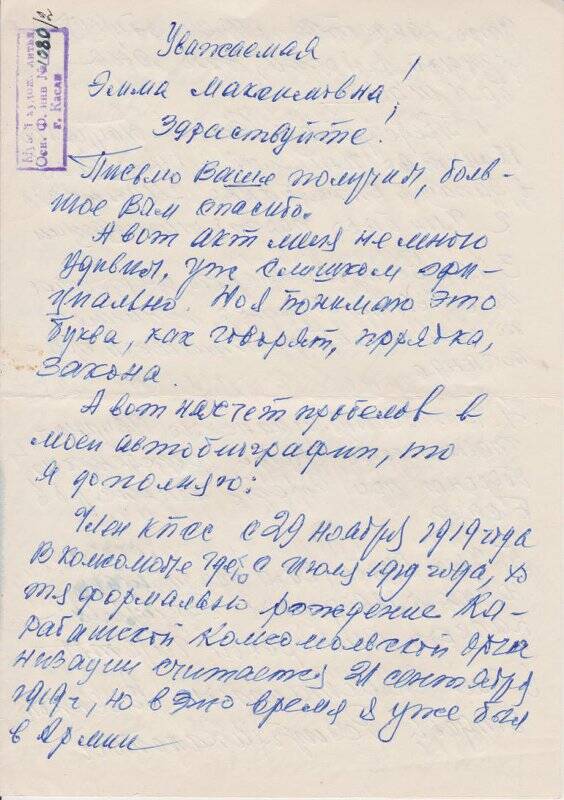 Музей худож. литья
Осн. Ф. инв № 1080/2
г. Касли
Уважаемая
Эмма Максимовна!
Здраствуйте!
Письмо Ваше получил, боль-
шое Вам спасибо.
А вот акт меня немного
удивил, уж слишком офи-
циально. Но я понимаю это
буква, как говорят, порядка,
закона.
А вот насчет пробелов в
моей автобиографии, то
я дополняю:
Член КПСС с 29 ноября 1919 года
В комсомоле где-то с июля 1919 года, хо
тя формально рождение Ка-
рабашской Комсомольской орга
низации считается 21 сентября
1919 г, но в это время я уже был
в Армии